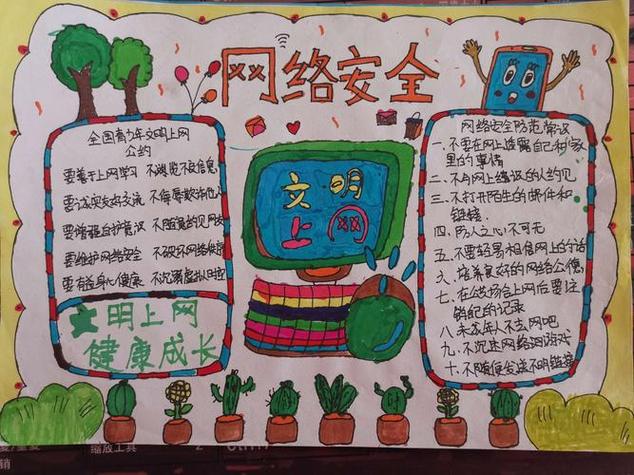 网络安全
全国青少年文明上网
公约
要善于上网学习 不浏览不良信息
要诚实友好交流 不侮辱欺诈他人
要增强自护意识 不随意约见网友
要维护网络安全 不破坏网络秩序
要有益身心健康 不沉溺虚拟时空
文明上网
健康成长
文明
上网
网络安全防范常识
一、不要在网上泄露自己和家
里的事情
二、不与网上结识的人约见
三、不打开陌生的邮件和
链接
四、防人之心不可无
五、不要轻易相信网上的
六、培养良好的网络公德
七、在公共场合上网后要注
销的记录
八、未成年人不去网吧
九、不沉迷网络游戏
十、不随便发送不明链接